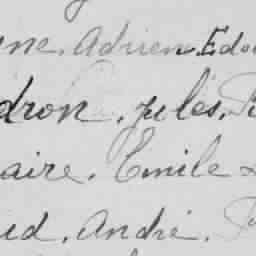 nne. Adrien. Edo
dron. Jules.
aire. Emile
ud. André.